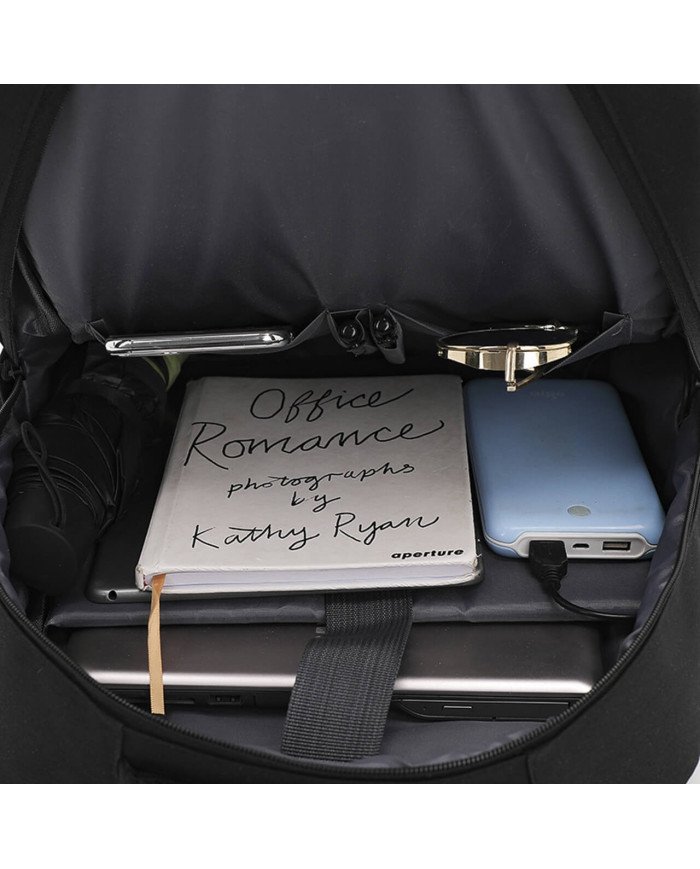 Office
Romance
photographs
by
Kathy Ryan
aperture